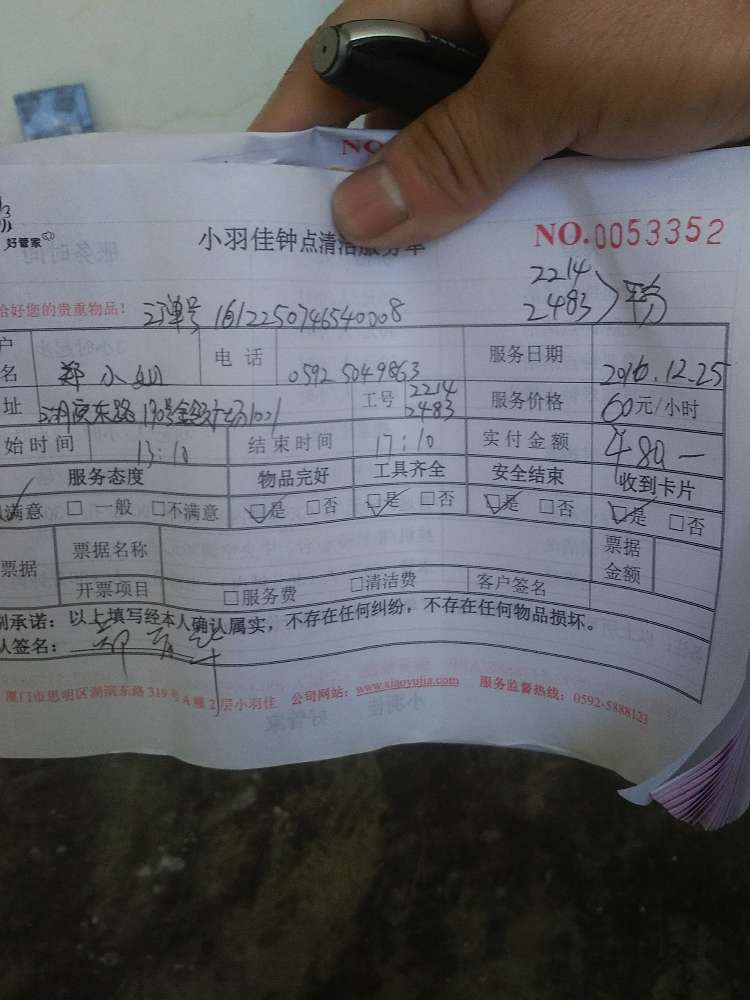 NO.
好管家
小羽佳钟点清洁服务单 NO.0053352
2214
2483
给好您的贵重物品！ 订单号 1612250746540008
户
名 郑小姐 电话 0592 5049863 服务日期 2016.12.25
址 170号 1001 工号 2214 2483 服务价格 60元/小时
始时间 13:10 结束时间 17:10 实付金额 480—
服务态度 物品完好 工具齐全 安全结束 收到卡片
满意 □ 一般 □不满意 □是 □否 □是 □否 □是 □否 □是 □否
票据 票据名称 票据金额
开票项目 □服务费 □清洁费 客户签名
承诺：以上填写经本人确认属实，不存在任何纠纷，不存在任何物品损坏。
人签名：
厦门市思明区湖滨东路319号A幢2层小羽佳 公司网站：www.xiaoyujia.com 服务监督热线：0592-5888123